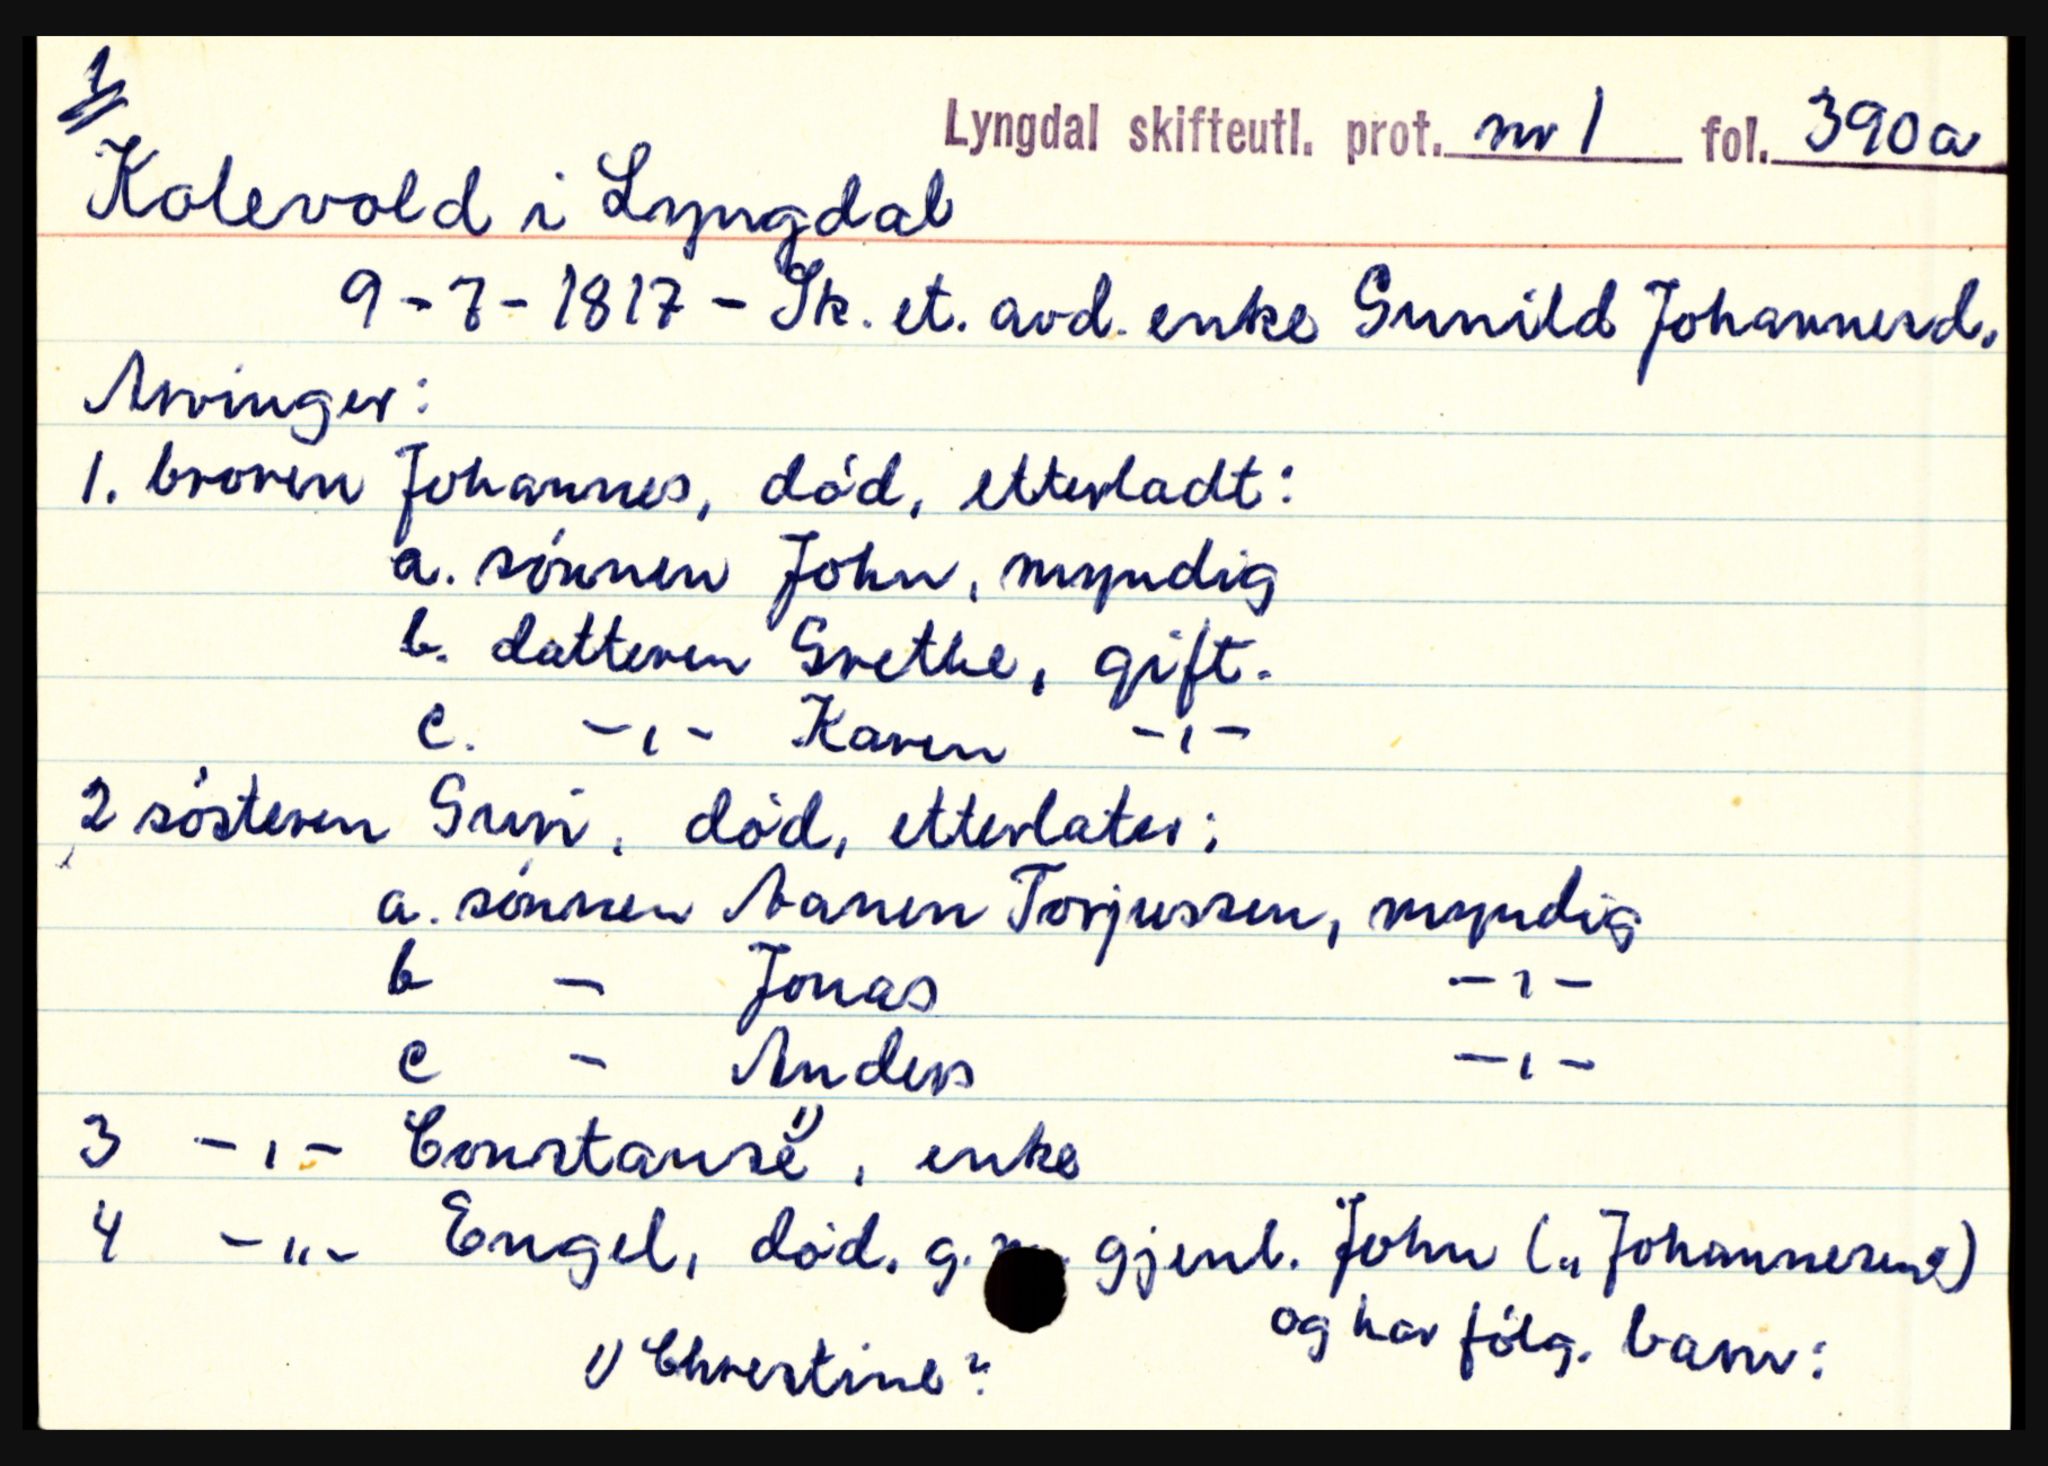 1
Lyngdal skifteutl. prot. nr 1 fol. 390a
Kalevold i Lyngdal
9-7-1817 - Sk. et. avd. enke Gunild Johannesd.
Arvinger:
1. broren Johannes, død, etterladt:
a. sønnen John, myndig
b. datteren Grethe, gift.
c. -,- Karen -,-
2 søsteren Guri, død, etterlater:
a. sønnen Aanen Torjussen, myndig
b - Jonas -,-
c - Anders -,-
3 -,- Constanse 1), enke
4 -„- Engel, død. g.m. gjenl. John („Johannesen?)
og har følg. barn:
1) Chrestine?